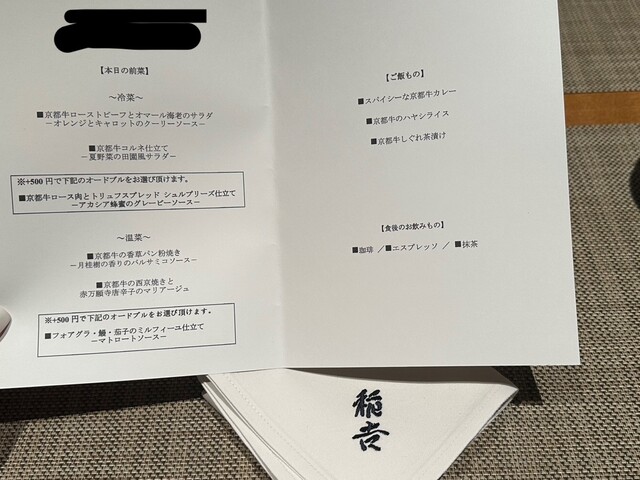 【本日の前菜】
～冷菜～
■京都牛ローストビーフとオマール海老のサラダ
－オレンジとキャロットのクーリーソース－
■京都牛コルネ仕立て
－夏野菜の田園風サラダ－
※+500 円で下記のオードブルをお選び頂けます。
■京都牛ロース肉とトリュフスプレッド シュルプリーズ仕立て
－アカシア蜂蜜のグレービーソース－
～温菜～
■京都牛の香草パン粉焼き
－月桂樹の香りのバルサミコソース－
■京都牛の西京焼きと
赤万願寺唐辛子のマリアージュ
※+500 円で下記のオードブルをお選び頂けます。
■フォアグラ・鰻・茄子のミルフィーユ仕立て
－マトロートソース－
【ご飯もの】
■スパイシーな京都牛カレー
■京都牛のハヤシライス
■京都牛しぐれ茶漬け
【食後のお飲みもの】
■珈琲 ／■エスプレッソ ／ ■抹茶
稲吉